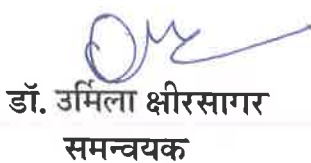 डॉ. उर्मिला क्षीरसागर
समन्वयक